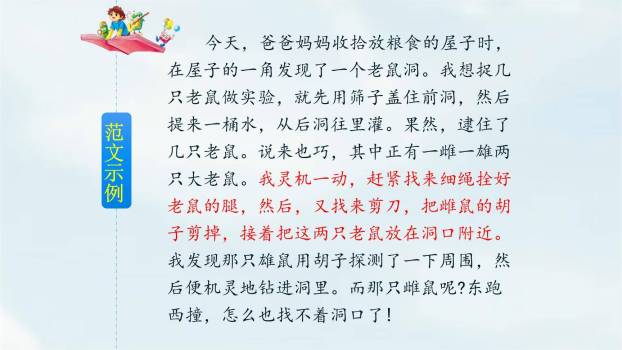 今天，爸爸妈妈收拾放粮食的屋子时，
在屋子的一角发现了一个老鼠洞。我想捉几
只老鼠做实验，就先用筛子盖住前洞，然后
提来一桶水，从后洞往里灌。果然，逮住了
几只老鼠。说来也巧，其中正有一雌一雄两
只大老鼠。我灵机一动，赶紧找来细绳拴好
老鼠的腿，然后，又找来剪刀，把雌鼠的胡
子剪掉，接着把这两只老鼠放在洞口附近。
我发现那只雄鼠用胡子探测了一下周围，然
后便机灵地钻进洞里。而那只雌鼠呢?东跑
西撞，怎么也找不着洞口了！
范文示例